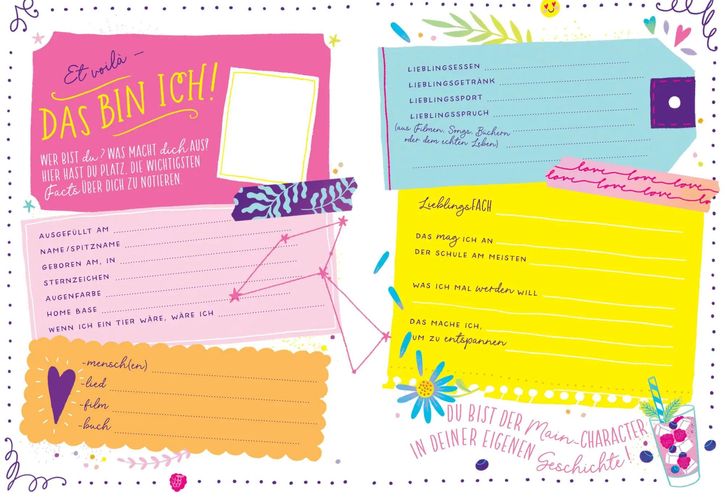 Et voilà –
DAS BIN ICH!
WER BIST du? WAS MACHT dich AUS?
HIER HAST DU PLATZ, DIE WICHTIGSTEN
Facts ÜBER DICH ZU NOTIEREN.
AUSGEFÜLLT AM
NAME/SPITZNAME
GEBOREN AM, IN
STERNZEICHEN
AUGENFARBE
HOME BASE
WENN ICH EIN TIER WÄRE, WÄRE ICH
-mensch(en)
-lied
-film
-buch
LIEBLINGSESSEN
LIEBLINGSGETRÄNK
LIEBLINGSSPORT
LIEBLINGSSPRUCH
(aus Filmen, Songs, Büchern
oder dem echten Leben)
love love love
love love love lo
LieblingsFACH
DAS mag ICH AN
DER SCHULE AM MEISTEN
WAS ICH MAL werden WILL
DAS MACHE ICH,
UM ZU entspannen
DU BIST DER Main-CHARACTER
IN DEINER EIGENEN
Geschichte!